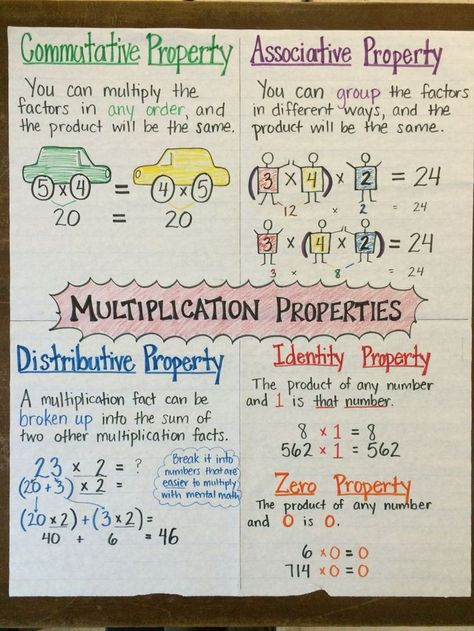 Commutative Property
You can multiply the
factors in any order, and
the product will be the same.
5 x 4 = 4 x 5
20 = 20
Associative Property
You can group the factors
in different ways, and the
product will be the same.
(3 x 4) x 2 = 24
12 x 2 = 24
3 x (4 x 2) = 24
3 x 8 = 24
MULTIPLICATION PROPERTIES
Distributive Property
A multiplication fact can be
broken up into the sum of
two other multiplication facts.
23 x 2 = ?
(20 + 3) x 2 =
(20 x 2) + (3 x 2) =
40 + 6 = 46
Break it into
numbers that are
easier to multiply
with mental math
Identity Property
The product of any number
and 1 is that number.
8 x 1 = 8
562 x 1 = 562
Zero Property
The product of any number
and 0 is 0.
6 x 0 = 0
714 x 0 = 0